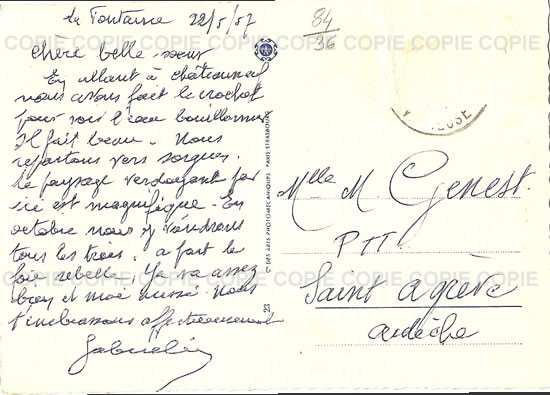 La Fontaine 22/5/57
84
36
COPIE COPIE COPIE COPIE COPIE COPIE COPIE
Chère belle-soeur
En allant à Châteauneuf
nous avons fait le crochet
pour voir l'eau bouillonner
Il fait beau. Nous
repartons vers Sorgues.
Le paysage verdoyant par
ici est magnifique. En
octobre nous y viendrons
tous les trois. a part le
foie rebelle, ça va assez
bien et moi aussi. Nous
t'embrassons affectueusement
VAUCLUSE
Cie DES ARTS PHOTOMECANIQUES PARIS-STRASBOURG
23
Mlle M. Genest
PTT
Saint Agrève
Ardèche
COPIE COPIE COPIE COPIE COPIE COPIE COPIE